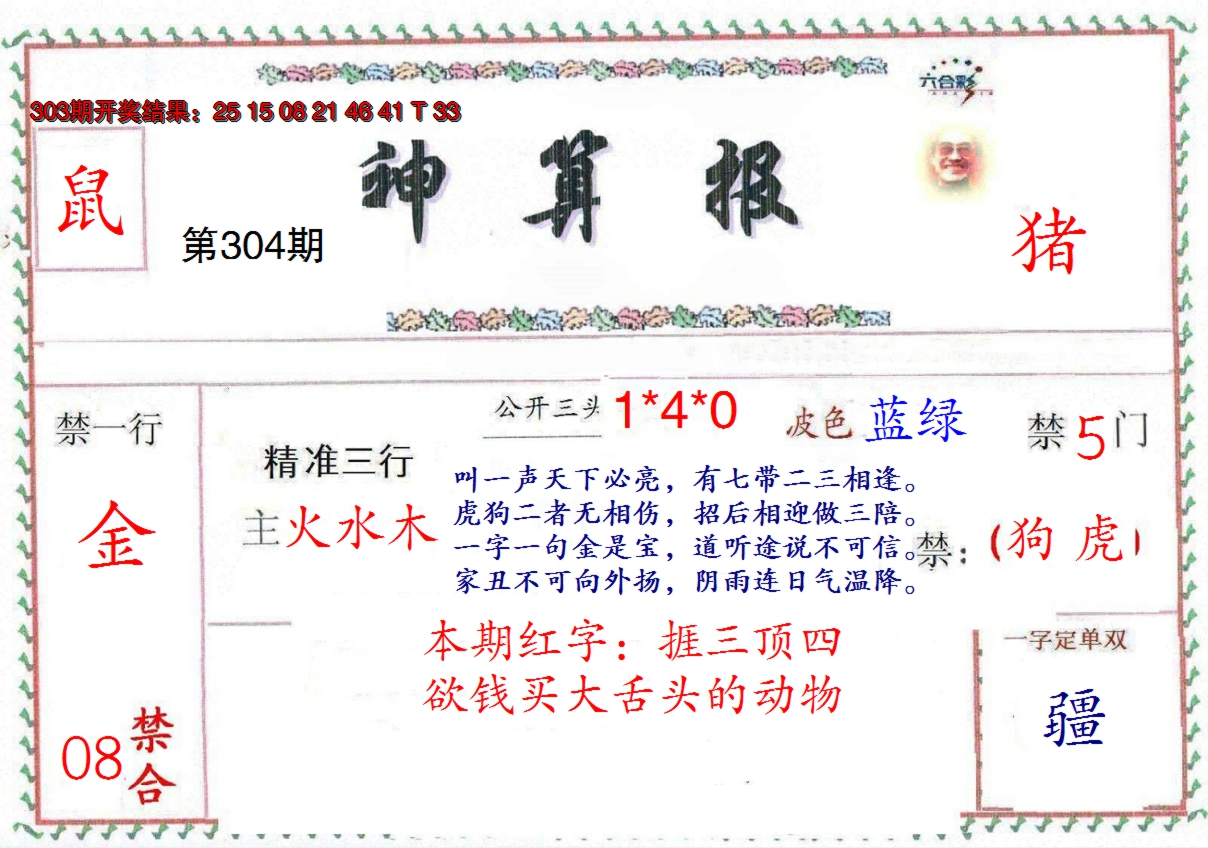 六合彩
303期开奖结果：25 15 08 21 46 41 T 33
神算报
鼠
第304期
猪
禁一行
金
08
禁合
公开三头 1*4*0
波色 蓝绿
禁5门
精准三行
主火水木
叫一声天下必亮，有七带二三相逢。
虎狗二者无相伤，招后相迎做三陪。
一字一句金是宝，道听途说不可信。
家丑不可向外扬，阴雨连日气温降。
禁：（狗 虎）
本期红字：捱三顶四
欲钱买大舌头的动物
一字定单双
疆